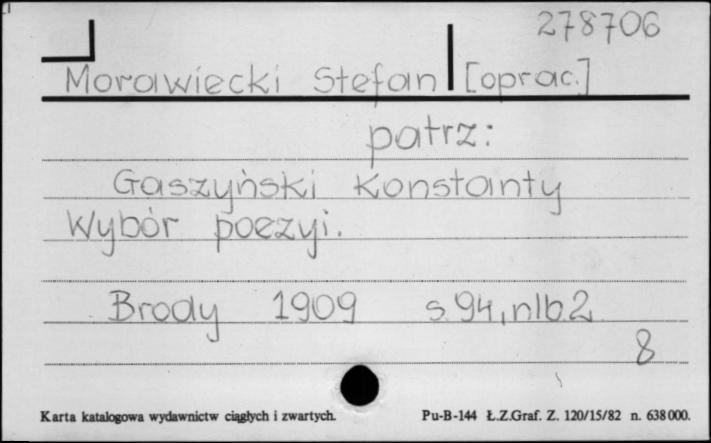 278706
Morawiecki Stefan [oprac.]
patrz:
Gaszyński Konstanty
Wybór poezyi.
Brody 1909 s.94, nlb.2
8
Karta katalogowa wydawnictw ciągłych i zwartych. Pu-B-144 Ł.Z.Graf. Z. 120/15/82 n. 638000.